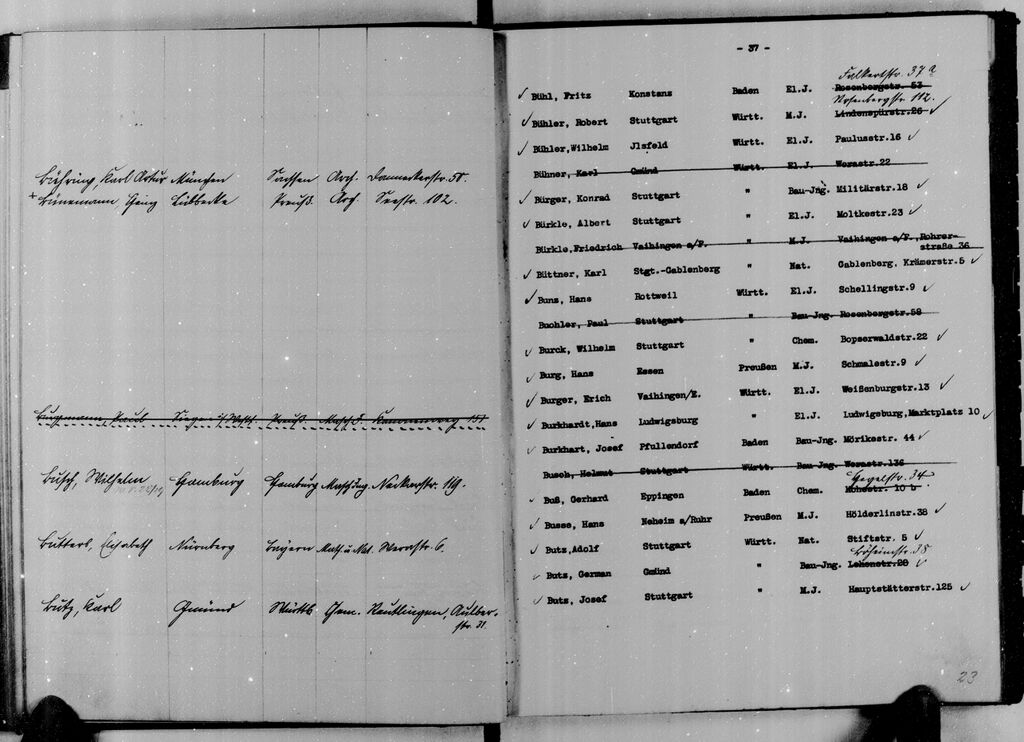 Bühring, Karl Artur München Sachsen Arch. Danneckerstr. 58.
+ Bünemann, Lübbecke Preuß. Arch. Seestr. 102.
Paul Siegen i/Westf. Preuß. Masch. 151
Busch, Wilhelm Hamburg Hamburg Masch. Ing. Neckarstr. 119.
Butters, Elisabeth Nürnberg Bayern Math. u. Nat. Werastr. 6.
Butz, Karl Gmünd Württb. Chem. Reutlingen, Aulber-
str. 31.
- 37 -
Falkertstr. 37 a
✓ Bühl, Fritz Konstanz Baden El.J. Rosenbergstr. 53
Rosenbergstr. 112.
✓ Bühler, Robert Stuttgart Württ. M.J. Lindenspürstr.26 ✓
✓ Bühler,Wilhelm Jlsfeld Württ. El.J. Paulusstr.16 ✓
Bühner, Karl Gmünd Württ. El.J. Werastr.22
✓ Bürger, Konrad Stuttgart " Bau-Jng. Militärstr.18 ✓
✓ Bürkle, Albert Stuttgart " El.J. Moltkestr.23 ✓
Bürkle,Friedrich Vaihingen a/F. " M.J. Vaihingen a/F.,Rohrer-
straße 36
✓ Büttner, Karl Stgt.-Gablenberg " Nat. Gablenberg, Krämerstr.5 ✓
✓ Bunz, Hans Rottweil Württ. El.J. Schellingstr.9 ✓
Buohler, Paul Stuttgart " Bau-Jng. Rosenbergstr.58
✓ Burck, Wilhelm Stuttgart " Chem. Bopserwaldstr.22 ✓
✓ Burg, Hans Essen Preußen M.J. Schmalestr.9 ✓
✓ Burger, Erich Vaihingen/E. Württ. El.J. Weißenburgstr.13 ✓
✓ Burkhardt,Hans Ludwigsburg " El.J. Ludwigsburg,Marktplatz 10 ✓
✓ Burkhart, Josef Pfullendorf Baden Bau-Jng. Mörikestr. 44 ✓
Busch, Helmut Stuttgart Württ. Bau-Jng. Werastr.136
Hegelstr. 34
✓ Buß, Gerhard Eppingen Baden Chem. Hohestr. 10 b
✓ Busse, Hans Neheim a/Ruhr Preußen M.J. Hölderlinstr.38 ✓
✓ Butz,Adolf Stuttgart Württ. Nat. Stiftstr. 5 ✓
38
✓ Butz, German Gmünd " Bau-Jng. Lehenstr.20 ✓
✓ Butz, Josef Stuttgart " M.J. Hauptstätterstr.125 ✓
23